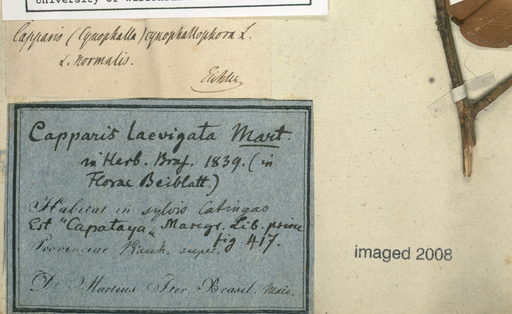 University of Wisconsin
Capparis (Cynophalla) cynophallophora L.
α. normalis.
Eichler
Capparis laevigata Mart.
in Herb. Bras. 1839. (in
Florae Beiblatt.)
Habitat in sylvis Catingas
Est "Capataya" Marcgr. Lib. prim.
fig 417.
Provinciae
Dr Martius Iter Brasil. Maio.
imaged 2008